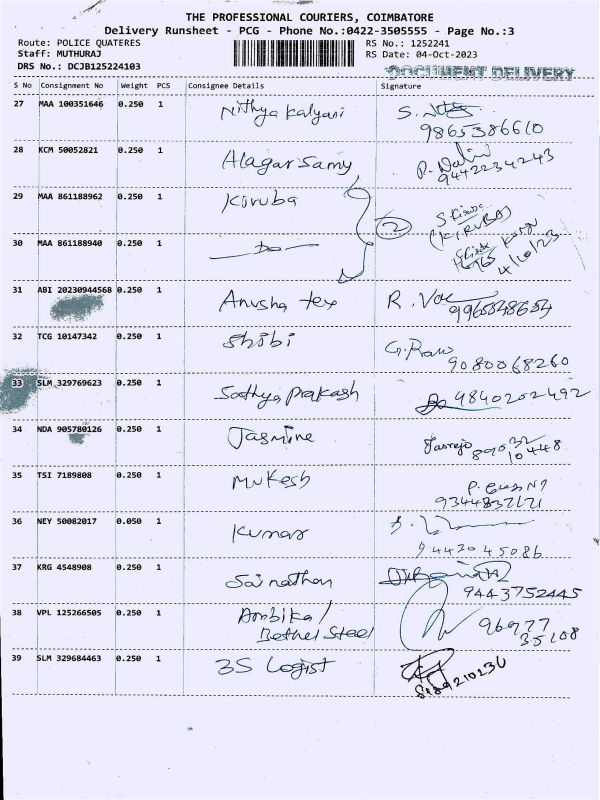 THE PROFESSIONAL COURIERS, COIMBATORE
Delivery Runsheet - PCG - Phone No.:0422-3505555 - Page No.:3
Route: POLICE QUATERES RS No.: 1252241
Staff: MUTHURAJ RS Date: 04-Oct-2023
DRS No.: DCJB125224103
DOCUMENT DELIVERY
S No Consignment No Weight PCS Consignee Details Signature
27 MAA 100351646 0.250 1 Nithya Kalyani S.
9865386610
28 KCM 50052821 0.250 1 Alagar Samy P.
9442234243
29 MAA 861188962 0.250 1 Kiruba 2
(KIRUBA)
30 MAA 861188940 0.250 1 Do
4/10/23
31 ABI 20230944568 0.250 1 Anusha tex R.
9965848654
32 TCG 10147342 0.250 1 Shibi G.
9080068260
33 SLM 329769623 0.250 1 Sathya Prakash 9840202492
34 NDA 905780126 0.250 1 Jasmine
10448
35 TSI 7189808 0.250 1 Mukesh P.
36 NEY 50082017 0.050 1 Kumar
9442045086
37 KRG 4548908 0.250 1 Sainathan
9443752445
38 VPL 125266505 0.250 1 Ambika/ 96977
Bethel Steel 35108
39 SLM 329684463 0.250 1 3S Logist